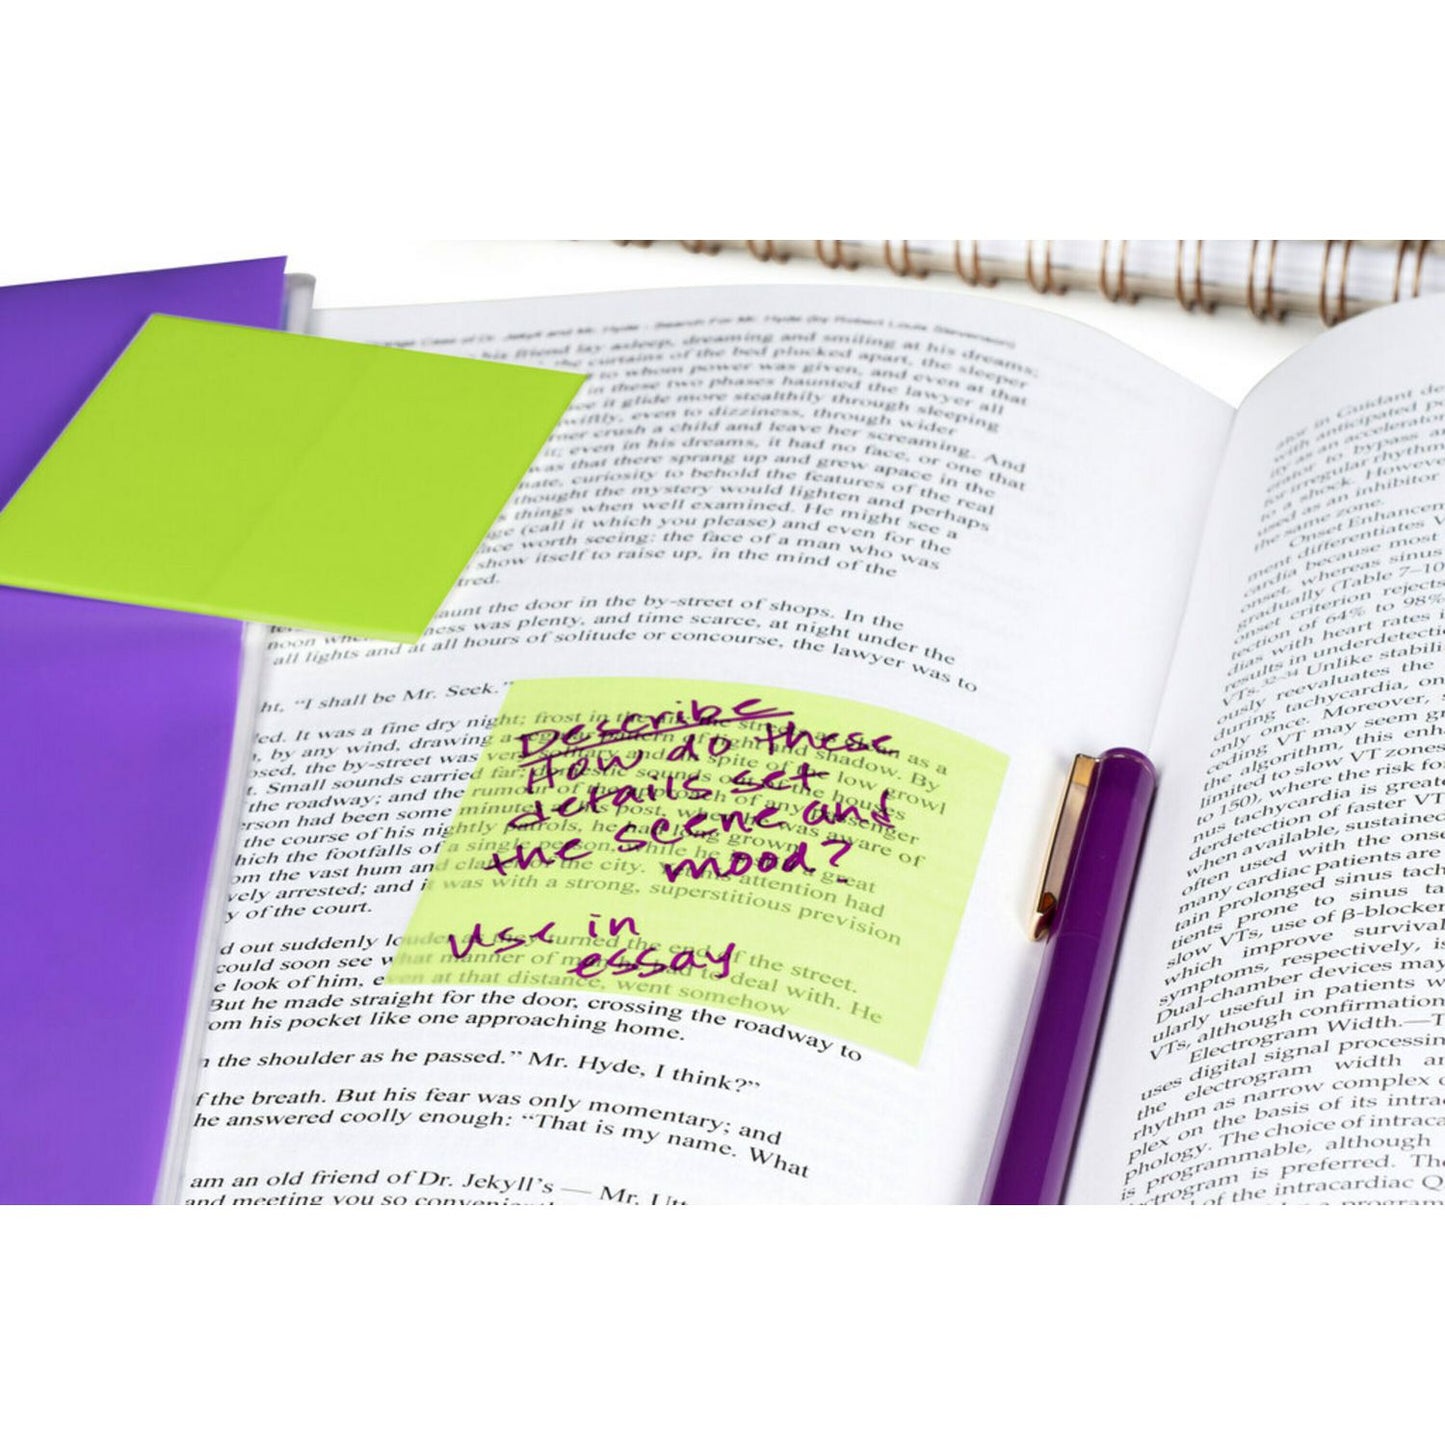 Case of Dr. Jekyll and Mr. Hyde - Search For Mr. Hyde (by Robert Louis Stevenson)
his friend lay asleep, dreaming and smiling at his dreams;
the curtains of the bed plucked apart, the sleeper
to whom power was given, and even at that
in these two phases haunted the lawyer all
it glide more stealthily through sleeping
swiftly, even to dizziness, through wider
crush a child and leave her screaming. And
it; even in his dreams, it had no face, or one that
was that there sprang up and grew apace in the
curiosity to behold the features of the real
thought the mystery would lighten and perhaps
things when well examined. He might see a
(call it which you please) and even for the
worth seeing: the face of a man who was
show itself to raise up, in the mind of the
aunt the door in the by-street of shops. In the
noon when ness was plenty, and time scarce, at night under the
all lights and at all hours of solitude or concourse, the lawyer was to
ht, “I shall be Mr. Seek.”
ed. It was a fine dry night; frost in the
by any wind, drawing a
the by-street was very solitary and
Small sounds carried far; domestic sounds out of the houses
the roadway; and the rumour of the approach of any passenger
rson had been some minutes at his post, when he was aware of
the course of his nightly patrols, he had long grown
hich the footfalls of a single person, while he
om the vast hum and clatter of the city.
vely arrested; and it was with a strong, superstitious prevision
y of the court.
Describe
How do these
details set
the scene and
mood?
use in
essay
d out suddenly louder as they turned the end of the street.
could soon see what manner of man he had to deal with. He
e look of him, even at that distance, went somehow
But he made straight for the door, crossing the roadway to
om his pocket like one approaching home.
n the shoulder as he passed.” Mr. Hyde, I think?”
f the breath. But his fear was only momentary; and
he answered coolly enough: “That is my name. What
am an old friend of Dr. Jekyll’s — Mr. Utt
and meeting you so
in Guidant
with anticipated
as an accelerator
to bypass
for irregular rhythm
to a shock. However
used as an inhibitor
the same zone.
Onset Enhancem
ment differentiates V
cardia because most
onset, whereas sinus
gradually (Table 7–10
onset criterion rejects
tection of 64% to 98%
dias with heart rates
results in underdetecti
VTs.32–34 Unlike stabili
ously reevaluates the
during tachycardia, on
only once. Moreover,
ceding VT may seem gr
the algorithm, this enh
limited to slow VT zones
to 150), where the risk fo
nus tachycardia is greate
derdetection of faster VT
when available, sustained
often used with the onse
many cardiac patients are
tain prolonged sinus tach
tients prone to sinus ta
slow VTs, use of β-blocker
which improve survival
symptoms, respectively, is
Dual-chamber devices may
ularly useful in patients w
VTs, although confirmation
Electrogram Width.—T
uses digital signal processin
the electrogram width an
rhythm as narrow complex o
plex on the basis of its intra
phology. The choice of intraca
is programmable, although
ctrogram is preferred. The
of the intracardiac Q